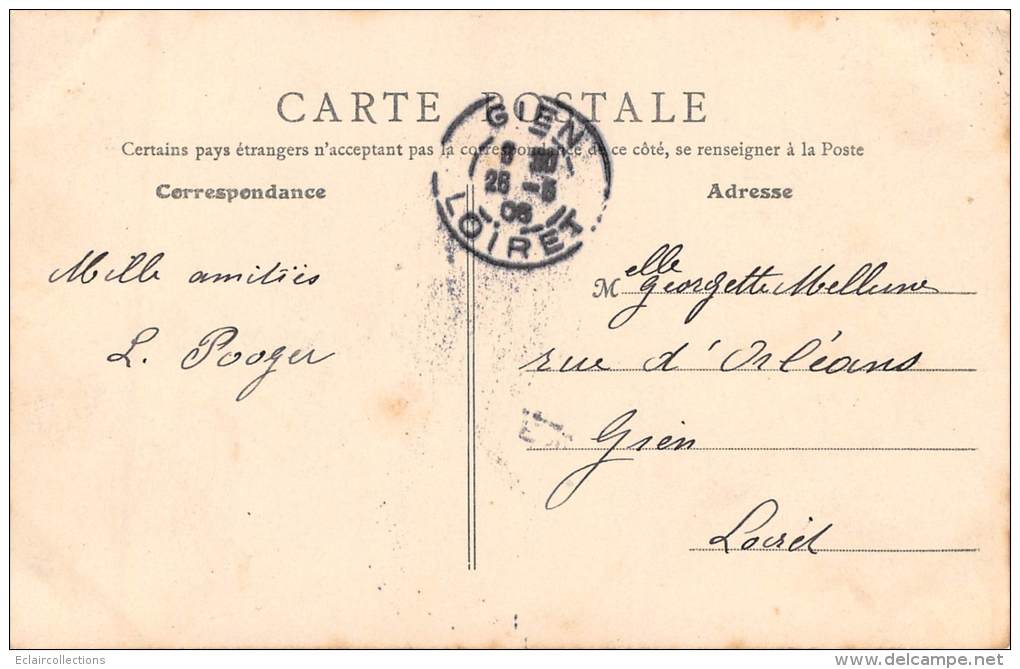 CARTE POSTALE
Certains pays étrangers n'acceptent pas la correspondance de ce côté, se renseigner à la Poste
Correspondance
Adresse
GIEN
25 -5
LOIRET
Mille amitiés
L. Pooger
Melle Georgette
rue d'Orléans
Gien
Loiret
Eclaircollections
www.delcampe.net